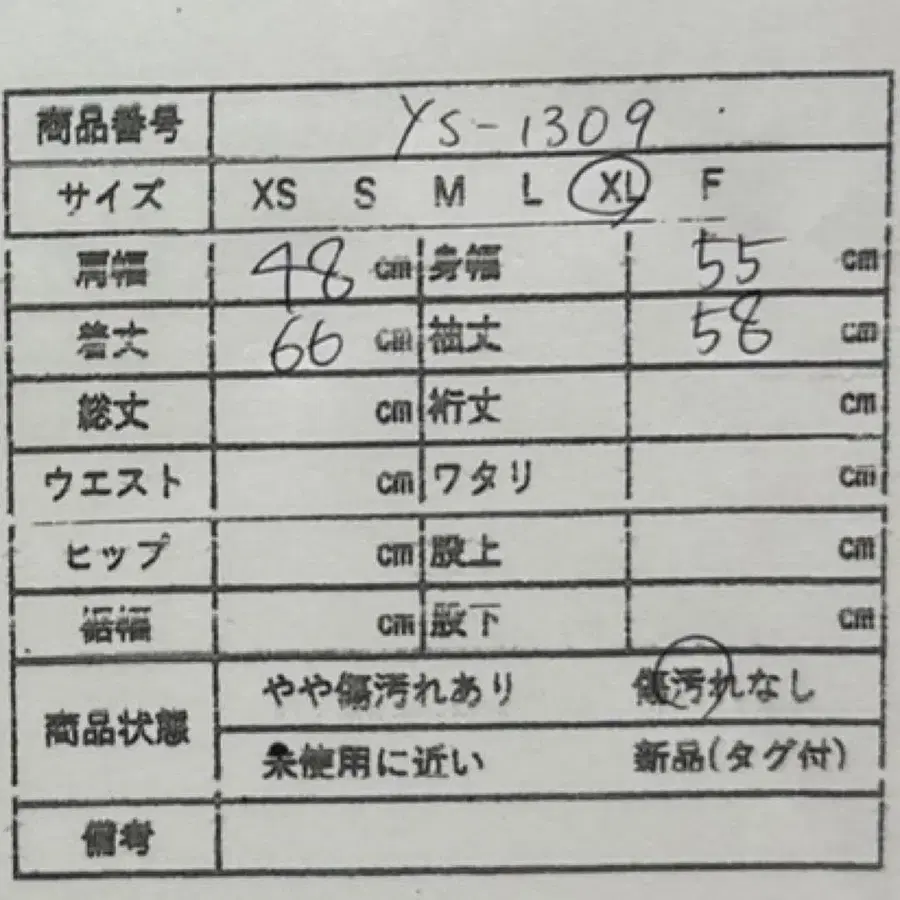 商品番号 YS-1309
サイズ XS S M L XL F
肩幅 48 cm 身幅 55 cm
着丈 66 cm 袖丈 58 cm
総丈 cm 裄丈 cm
ウエスト cm ワタリ cm
ヒップ cm 股上 cm
裾幅 cm 股下 cm
商品状態 やや傷汚れあり 傷汚れなし
未使用に近い 新品(タグ付)
備考